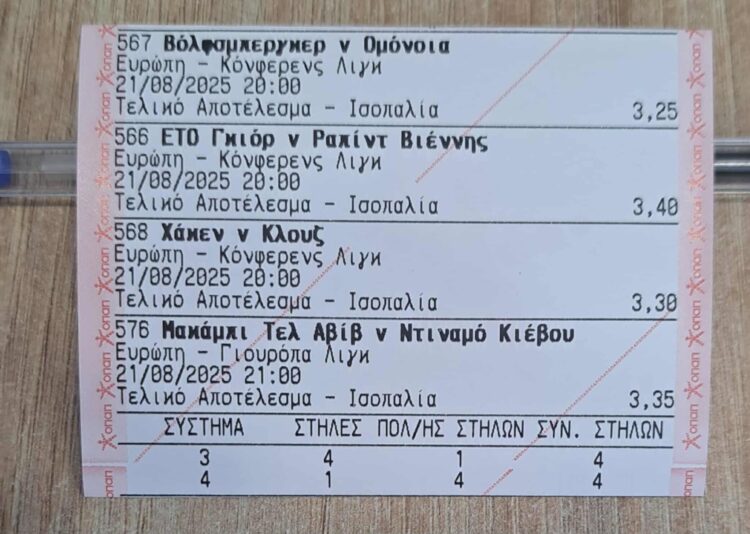 567 Βόλφσμπεργκερ v Ομόνοια
Ευρώπη - Κόνφερενς Λιγκ
21/08/2025 20:00
Τελικό Αποτέλεσμα - Ισοπαλία 3,25
566 ΕΤΟ Γκιόρ v Ραπίντ Βιέννης
Ευρώπη - Κόνφερενς Λιγκ
21/08/2025 20:00
Τελικό Αποτέλεσμα - Ισοπαλία 3,40
568 Χάκεν v Κλουζ
Ευρώπη - Κόνφερενς Λιγκ
21/08/2025 20:00
Τελικό Αποτέλεσμα - Ισοπαλία 3,30
576 Μακάμπι Τελ Αβίβ v Ντιναμό Κιέβου
Ευρώπη - Γιουρόπα Λιγκ
21/08/2025 21:00
Τελικό Αποτέλεσμα - Ισοπαλία 3,35
ΣΥΣΤΗΜΑ ΣΤΗΛΕΣ ΠΟΛ/ΗΣ ΣΤΗΛΩΝ ΣΥΝ. ΣΤΗΛΩΝ
3 4 1 4
4 1 4 4
οπαπ
οπαπ
οπαπ
οπαπ
οπαπ
οπαπ
οπαπ
οπαπ
οπαπ
οπαπ
οπαπ
οπαπ